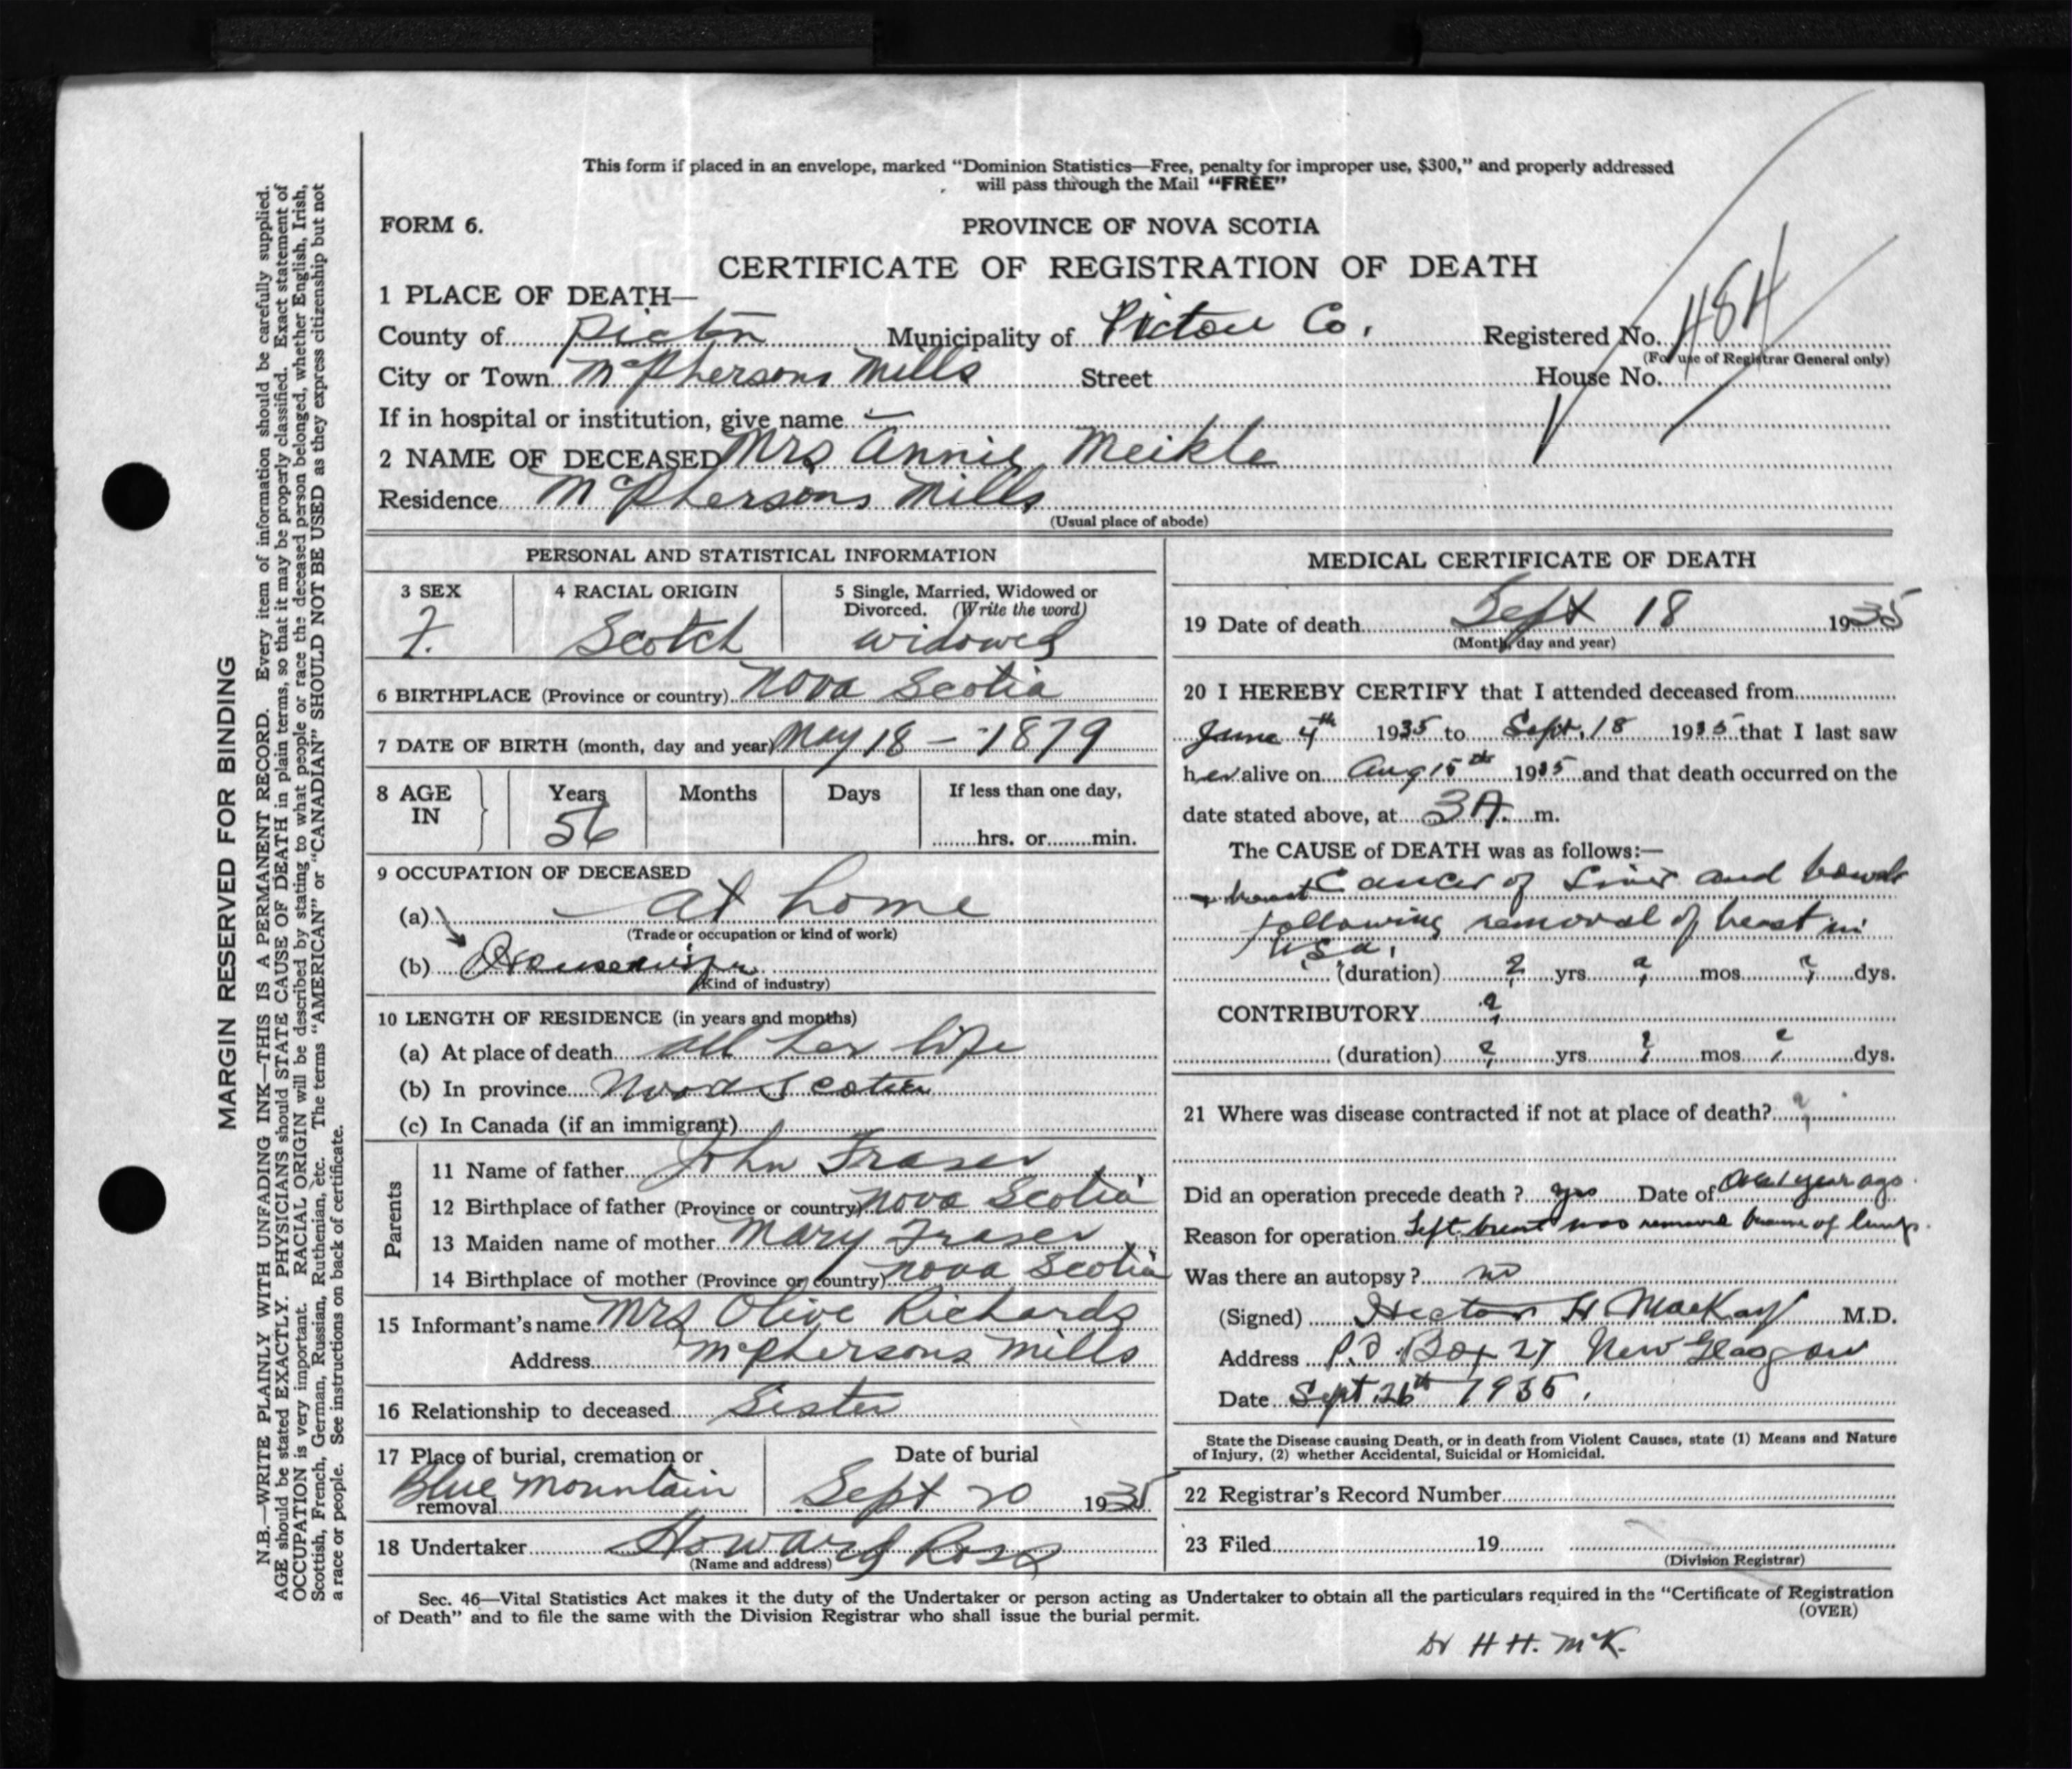 This form if placed in an envelope, marked "Dominion Statistics—Free, penalty for improper use, $300," and properly addressed
will pass through the Mail "FREE"
FORM 6.
PROVINCE OF NOVA SCOTIA
CERTIFICATE OF REGISTRATION OF DEATH
1 PLACE OF DEATH—
County of Pictou Municipality of Pictou Co. Registered No. 484
(For use of Registrar General only)
City or Town McPhersons Mills Street House No.
If in hospital or institution, give name —
2 NAME OF DECEASED Mrs Annie Meikle
Residence McPhersons Mills
(Usual place of abode)
PERSONAL AND STATISTICAL INFORMATION
3 SEX 4 RACIAL ORIGIN 5 Single, Married, Widowed or
Divorced. (Write the word)
F. Scotch widowed
6 BIRTHPLACE (Province or country) Nova Scotia
7 DATE OF BIRTH (month, day and year) May 18 – 1879
8 AGE IN Years Months Days If less than one day,
56 hrs. or min.
9 OCCUPATION OF DECEASED
(a) at home
(Trade or occupation or kind of work)
(b) Housewife
(Kind of industry)
10 LENGTH OF RESIDENCE (in years and months)
(a) At place of death all her life
(b) In province Nova Scotia
(c) In Canada (if an immigrant)
Parents
11 Name of father John Fraser
12 Birthplace of father (Province or country) Nova Scotia
13 Maiden name of mother Mary Fraser
14 Birthplace of mother (Province or country) Nova Scotia
15 Informant's name Mrs Olive Richards
Address McPhersons Mills
16 Relationship to deceased Sister
17 Place of burial, cremation or Date of burial
Blue Mountain
removal Sept 20 1935
18 Undertaker Howard Ross
(Name and address)
MEDICAL CERTIFICATE OF DEATH
19 Date of death Sept 18 1935
(Month, day and year)
20 I HEREBY CERTIFY that I attended deceased from
June 4th 1935 to Sept. 18 1935 that I last saw
her alive on Aug 15th 1935 and that death occurred on the
date stated above, at 3 A. m.
The CAUSE of DEATH was as follows:—
+ breast Cancer of Liver and bowels
following removal of breast in
USA.
(duration) ? yrs ? mos ? dys.
CONTRIBUTORY ?
(duration) ? yrs ? mos ? dys.
21 Where was disease contracted if not at place of death? ?
Did an operation precede death? yes Date of Over 1 year ago.
Reason for operation Left breast was removed because of lump.
Was there an autopsy? no
(Signed) Hector H MacKay M.D.
Address P.O Box 27 New Glasgow
Date Sept. 26th 1935.
State the Disease causing Death, or in death from Violent Causes, state (1) Means and Nature
of Injury, (2) whether Accidental, Suicidal or Homicidal.
22 Registrar's Record Number
23 Filed 19
(Division Registrar)
Sec. 46—Vital Statistics Act makes it the duty of the Undertaker or person acting as Undertaker to obtain all the particulars required in the "Certificate of Registration
of Death" and to file the same with the Division Registrar who shall issue the burial permit.
(OVER)
Dr H H. McK.
MARGIN RESERVED FOR BINDING
N.B.—WRITE PLAINLY WITH UNFADING INK—THIS IS A PERMANENT RECORD. Every item of information should be carefully supplied.
AGE should be stated EXACTLY. PHYSICIANS should STATE CAUSE OF DEATH in plain terms, so that it may be properly classified. Exact statement of
OCCUPATION is very important. RACIAL ORIGIN will be described by stating to what people or race the deceased person belonged, whether English, Irish,
Scottish, French, German, Russian, Ruthenian, etc. The terms "AMERICAN" or "CANADIAN" SHOULD NOT BE USED as they express citizenship but not
a race or people. See instructions on back of certificate.